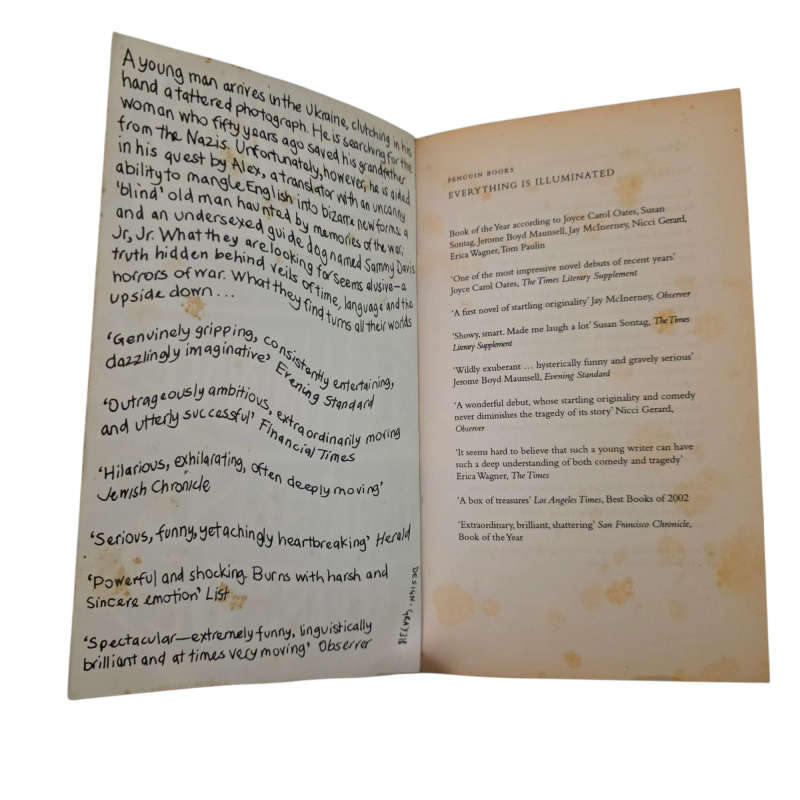 A young man arrives in the Ukraine, clutching in his
hand a tattered photograph. He is searching for the
woman who fifty years ago saved his grandfather
from the Nazis. Unfortunately, however, he is aided
in his quest by Alex, a translator with an uncanny
ability to mangle English into bizarre new forms; a
'blind' old man haunted by memories of the war;
and an undersexed guide dog named Sammy Davis
Jr, Jr. What they are looking for seems elusive – a
truth hidden behind veils of time, language and the
horrors of war. What they find turns all their worlds
upside down ...
'Genuinely gripping, consistently entertaining,
dazzlingly imaginative' Evening Standard
'Outrageously ambitious, extraordinarily moving
and utterly successful' Financial Times
'Hilarious, exhilarating, often deeply moving'
Jewish Chronicle
'Serious, funny, yet achingly heartbreaking' Herald
'Powerful and shocking. Burns with harsh and
sincere emotion' List
'Spectacular—extremely funny, linguistically
brilliant and at times very moving' Observer
DESIGN: GRAY318
PENGUIN BOOKS
EVERYTHING IS ILLUMINATED
Book of the Year according to Joyce Carol Oates, Susan
Sontag, Jerome Boyd Maunsell, Jay McInerney, Nicci Gerard,
Erica Wagner, Tom Paulin
'One of the most impressive novel debuts of recent years'
Joyce Carol Oates, The Times Literary Supplement
'A first novel of startling originality' Jay McInerney, Observer
'Showy, smart. Made me laugh a lot' Susan Sontag, The Times
Literary Supplement
'Wildly exuberant ... hysterically funny and gravely serious'
Jerome Boyd Maunsell, Evening Standard
'A wonderful debut, whose startling originality and comedy
never diminishes the tragedy of its story' Nicci Gerard,
Observer
'It seems hard to believe that such a young writer can have
such a deep understanding of both comedy and tragedy'
Erica Wagner, The Times
'A box of treasures' Los Angeles Times, Best Books of 2002
'Extraordinary, brilliant, shattering' San Francisco Chronicle,
Book of the Year